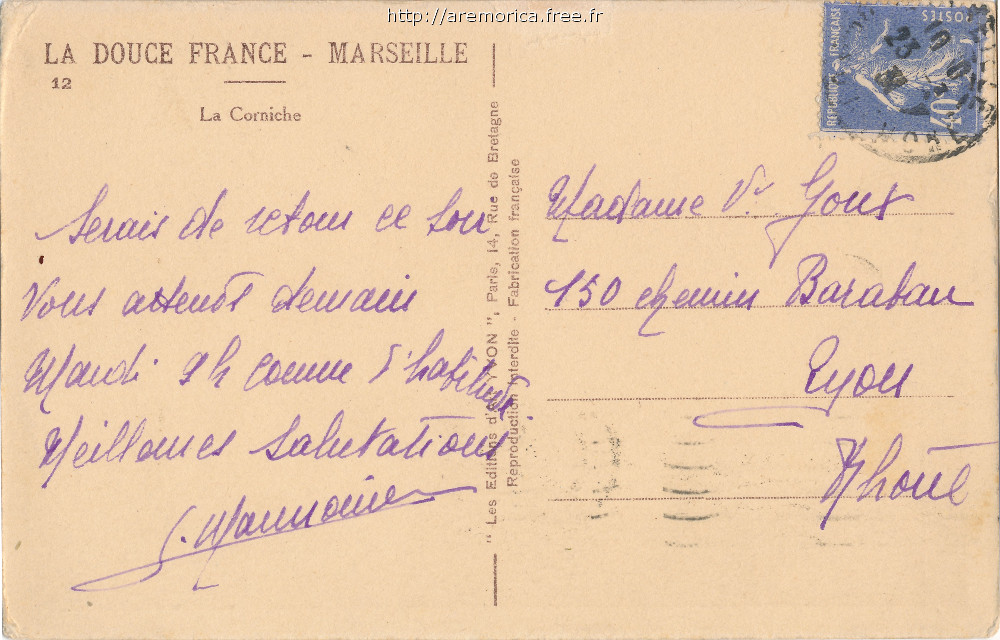 http://aremorica.free.fr
LA DOUCE FRANCE - MARSEILLE
12
La Corniche
Serais de retour ce soir
Vous attends demain
Mardi 9h comme d'habitude.
Meilleures salutations
" Les Editions d'Art YVON ", Paris, 14, Rue de Bretagne
Reproduction Interdite - Fabrication française
POSTES
RÉPUBLIQUE FRANÇAISE
40
23
Madame Vᵉ Goux
150 chemin Baraban
Lyon
Rhône